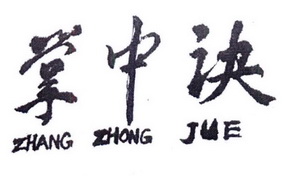 掌中诀
ZHANG ZHONG JUE